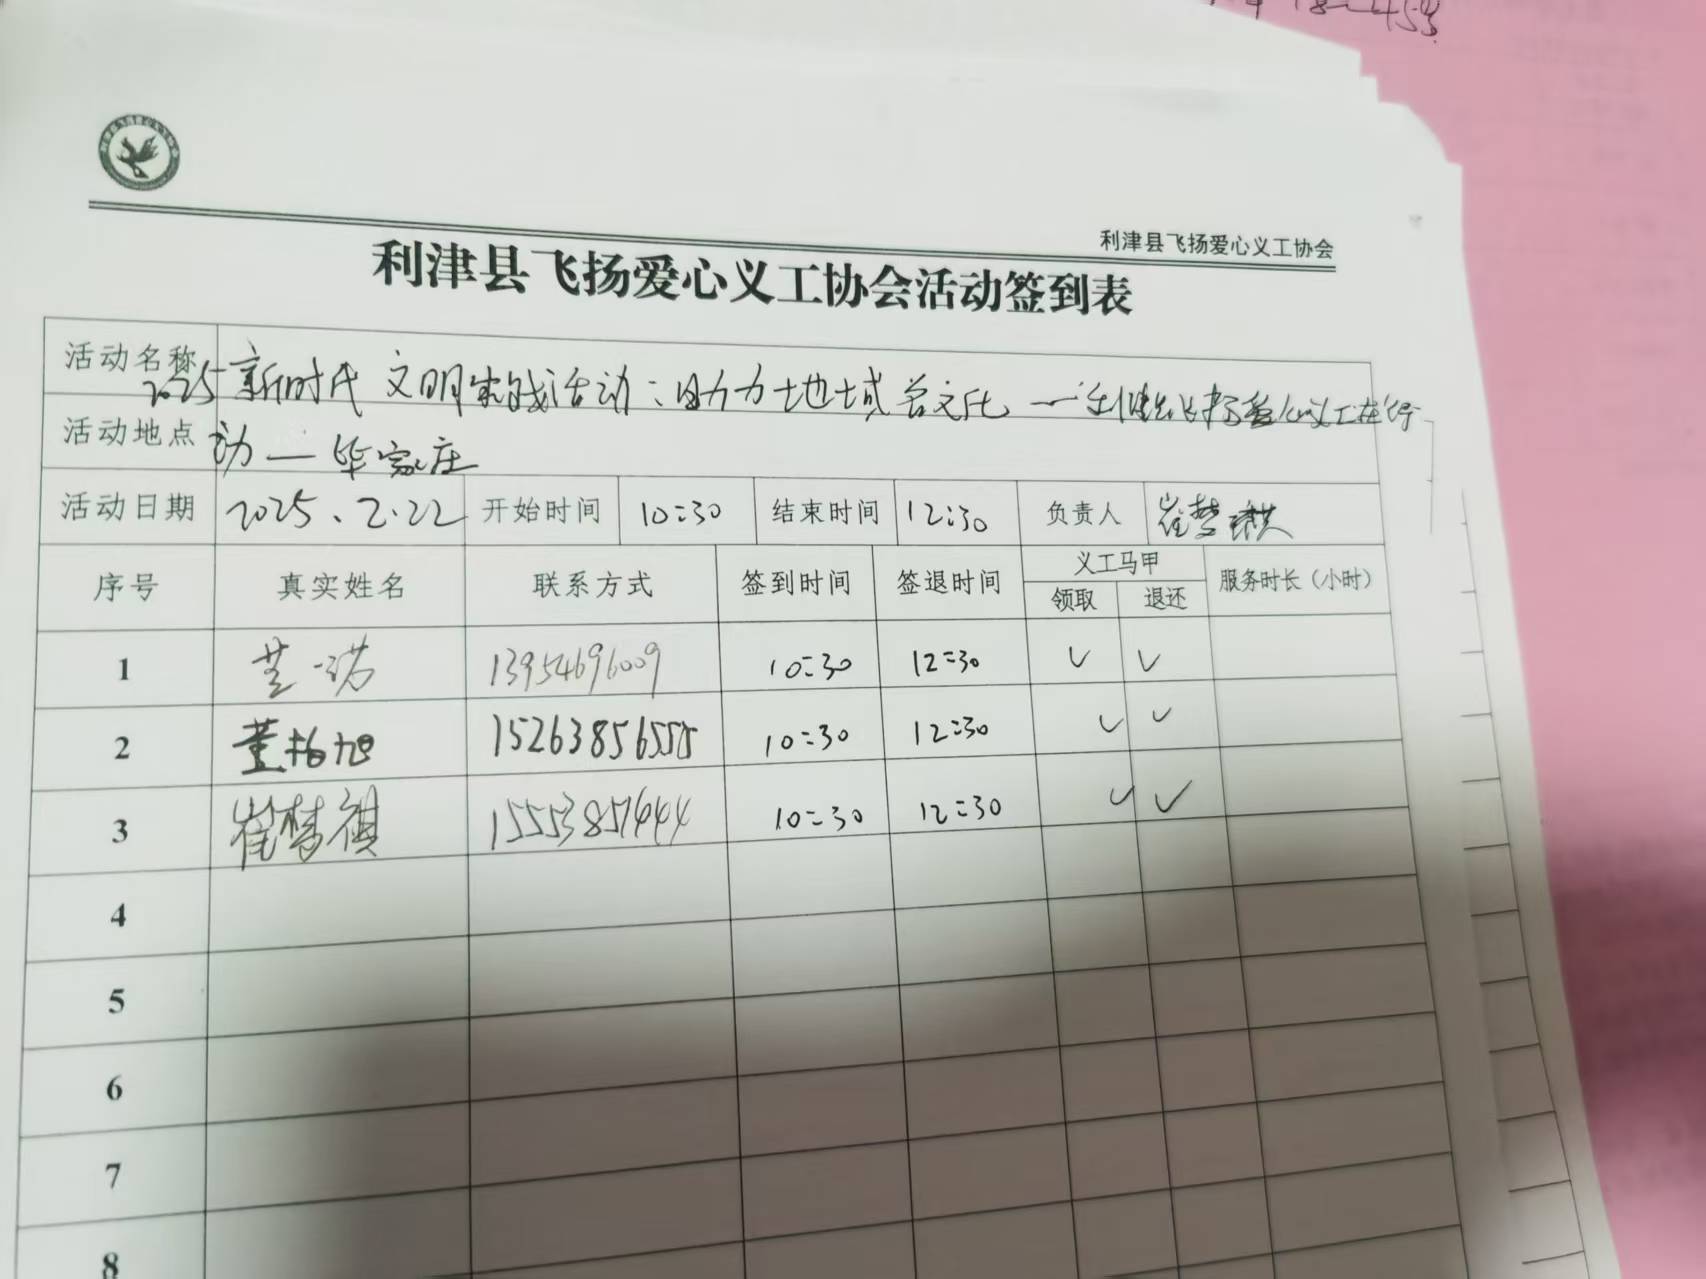 利津县飞扬爱心义工协会
利津县飞扬爱心义工协会活动签到表
活动名称 2025新时代文明实践活动:助力地域总文化一利津县飞扬爱心义工在行
活动地点 动一毕家庄
活动日期 2025.2.22 开始时间 10:30 结束时间 12:30 负责人 崔梦祺
序号 真实姓名 联系方式 签到时间 签退时间 义工马甲 服务时长(小时)
领取 退还
1 董一诺 13954696009 10:30 12:30 ✓ ✓
2 董柏旭 15263856555 10:30 12:30 ✓ ✓
3 崔梦祺 15553857444 10:30 12:30 ✓ ✓
4
5
6
7
8